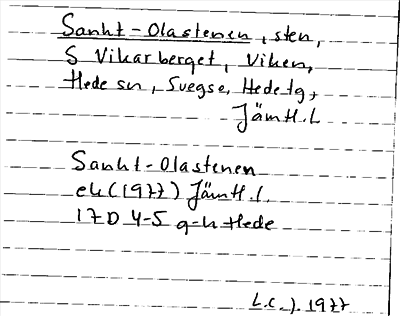 Sankt-Olastenen, sten,
S Vikarberget, Viken,
Hede sn, Svegs, Hede tg,
Jämtl. L
Sankt-Olastenen
ek (1977) Jämtl.
17D 4-5 g-h Hede
1977